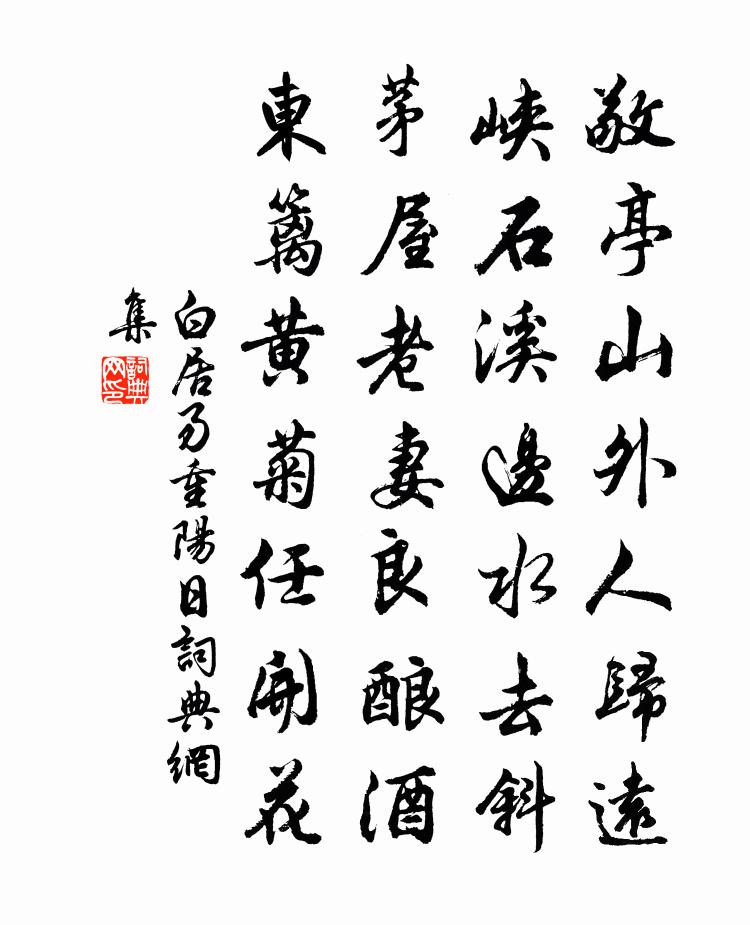 敬亭山外人歸遠
峽石溪邊水去斜
茅屋老妻良酿酒
東籬黃菊任開花
白居易重陽日詞典網
集
詞典
网印